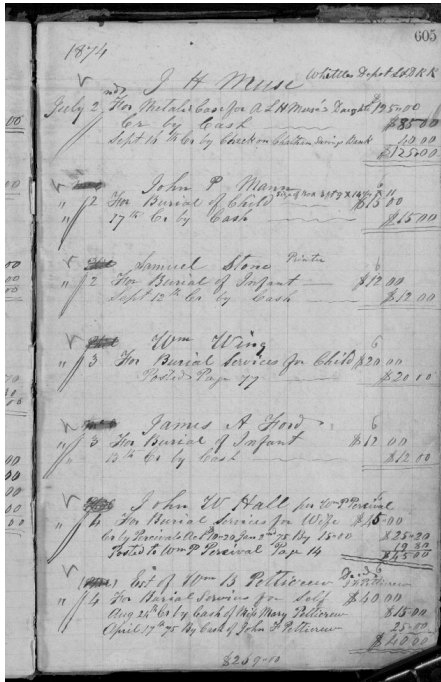 605
1874
J H Muse Whittles Depot L & D R R
July 2 For Metalic Case for A L H Muse's Daught 125.00
Cr by Cash $85 00
Sept 16th Cr by Check on Chatham Savings Bank 40.00
$125.00
John P Mann 6
" 2 For Burial of Child $15 00
17th Cr by Cash $15 00
Samuel Stone Printer 6
" 2 For Burial of Infant $12 00
Sept 12th Cr by Cash $12 00
Wm Wing 6
" 3 For Burial Services for Child $20 00
Posted Page 77 $20 00
James A Ford 6
" 3 For Burial of Infant $12 00
13th Cr by Cash $12 00
John W Hall per Wm P Percival
" 4 For Burial Services for Wife $45-00
Cr by Percivals Act 10-20 Jan 2nd 75 By 15-00 $25-20
19 80
Posted to Wm P Percival Page 14 $45 00
Est of Wm B Petticrew
J F Petticrew
" 4 For Burial Services for Self $40.00
Aug 24th Cr by Cash of Miss Mary Petticrew $15 00
April 17th 75 By Cash of John F Petticrew 25-00
$40.00
$269-00